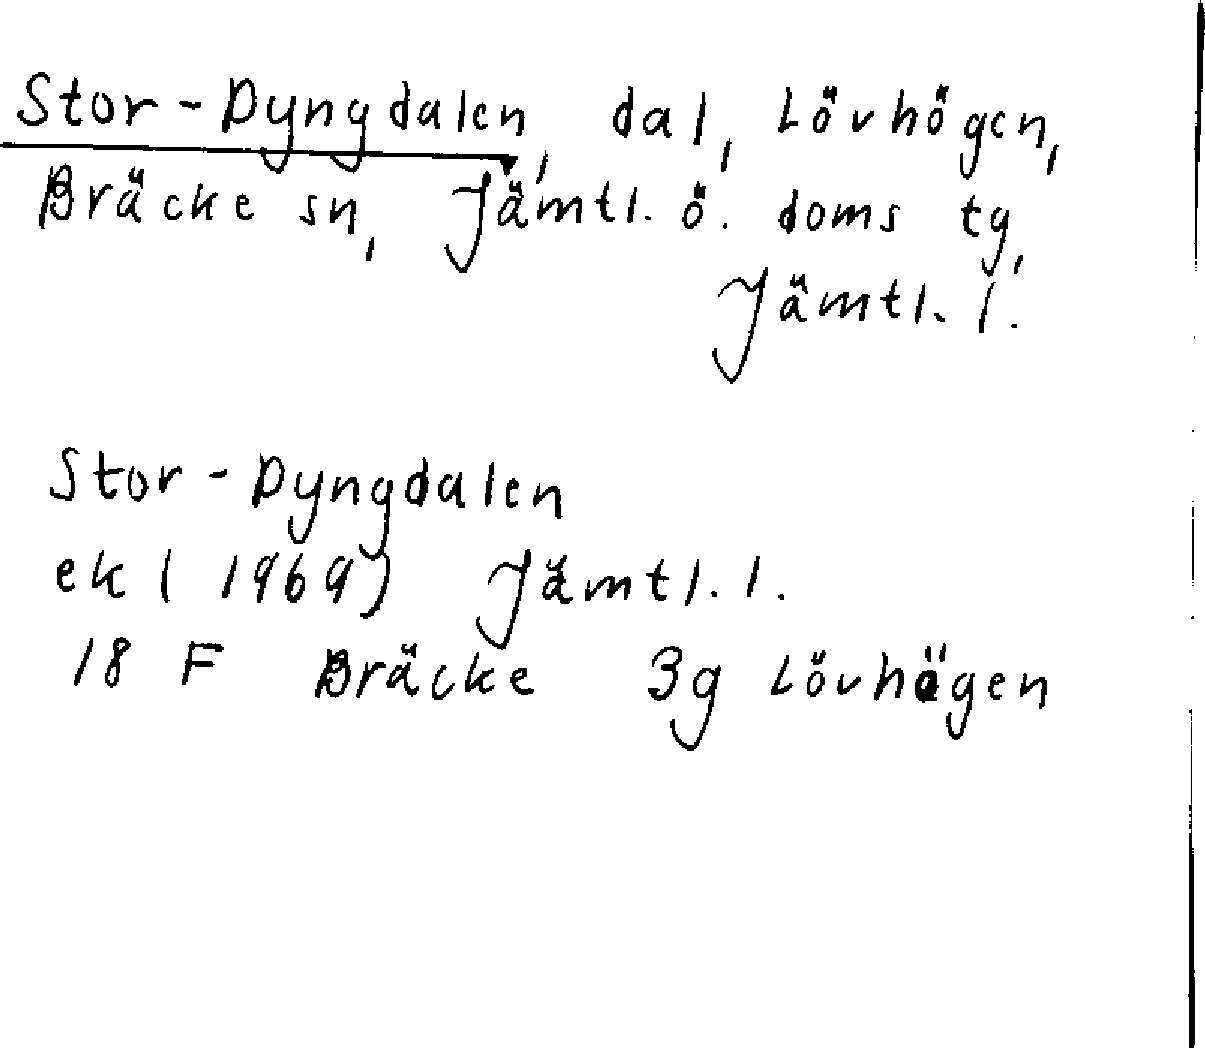 Stor-Dyngdalen, dal, Lövhögen,
Bräcke sn, Jämtl. ö. doms tg,
Jämtl. l.
Stor-Dyngdalen
ek (1969) Jämtl. l.
18 F Bräcke 3g Lövhögen